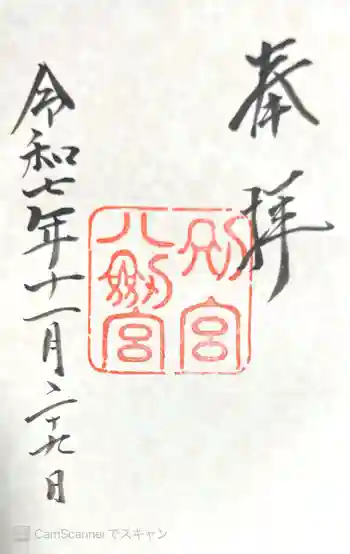 奉拝
別宮
八剣宮
令和七年十一月二十九日
CamScannerでスキャン